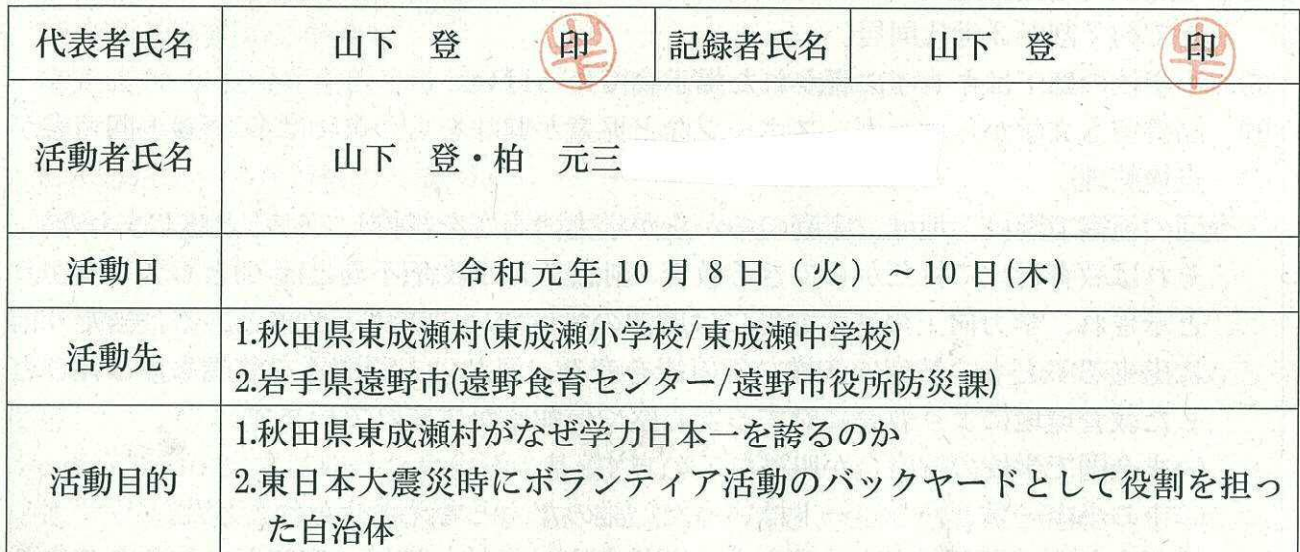 代表者氏名 山下 登 印 記録者氏名 山下 登 印
活動者氏名 山下 登・柏 元三
活動日 令和元年10月8日(火)~10日(木)
活動先 1.秋田県東成瀬村(東成瀬小学校/東成瀬中学校)
2.岩手県遠野市(遠野食育センター/遠野市役所防災課)
活動目的 1.秋田県東成瀬村がなぜ学力日本一を誇るのか
2.東日本大震災時にボランティア活動のバックヤードとして役割を担っ
た自治体